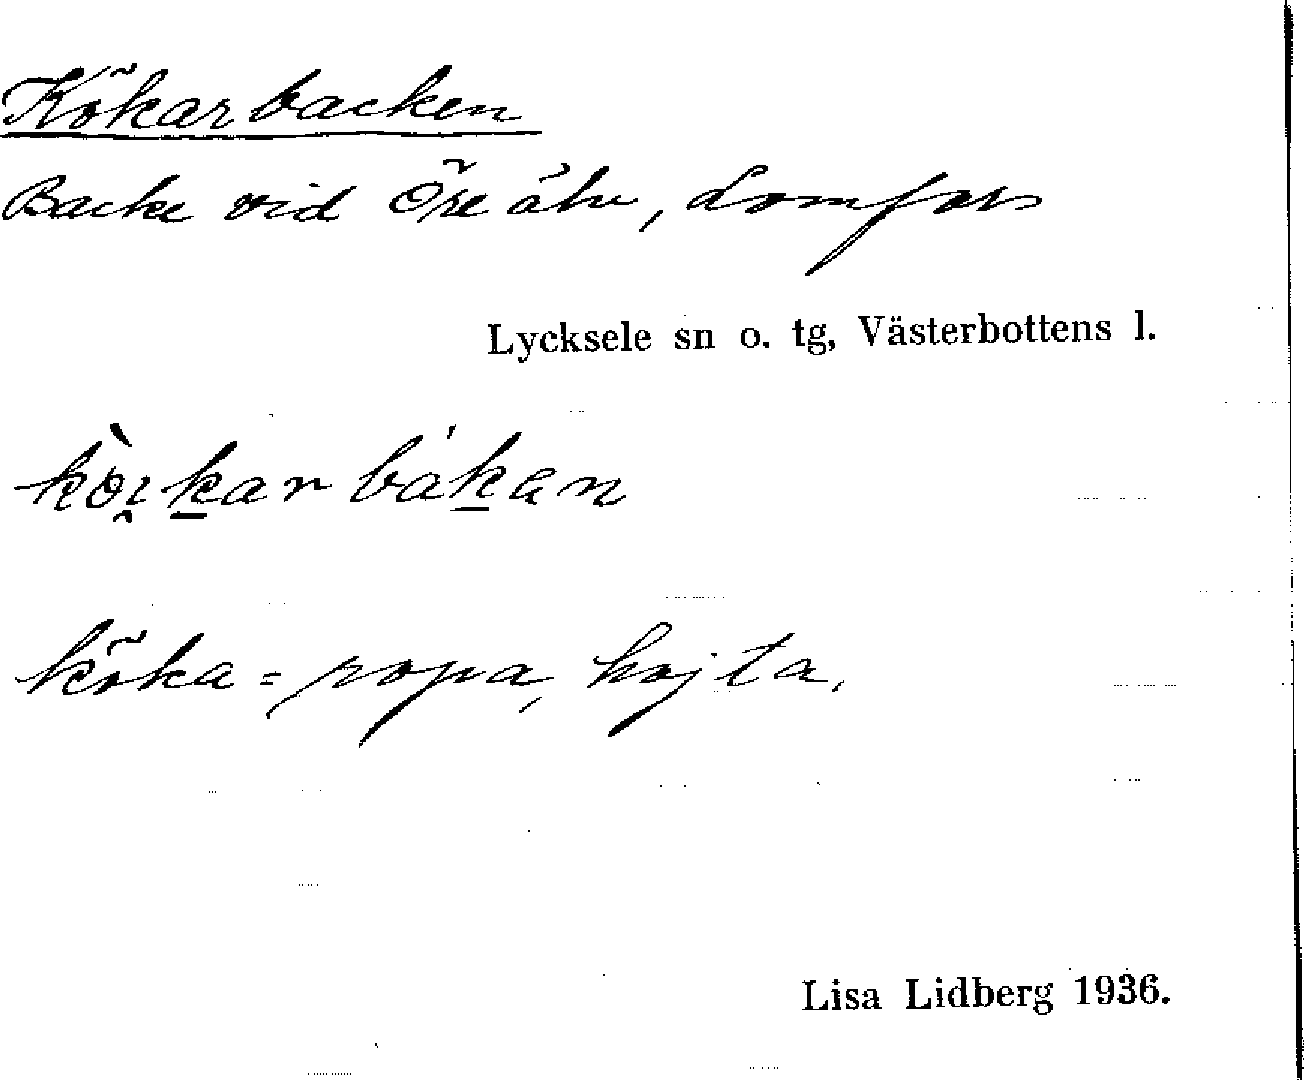 Kökarbacken
Backe vid Öre älv, Lomfors
Lycksele sn o. tg, Västerbottens l.
köka = ropa, hojta.
Lisa Lidberg 1936.